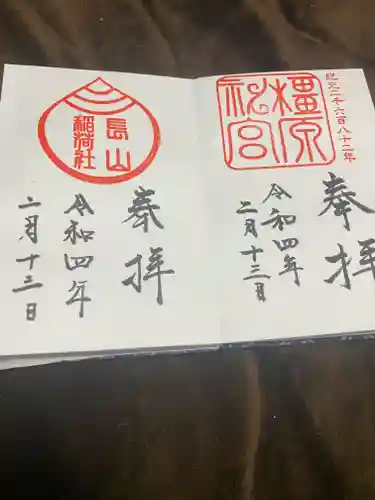 紀元二千六百八十二年
橿原神宮
奉拝
令和四年
二月十三日
長山稲荷社
奉拝
令和四年
二月十三日